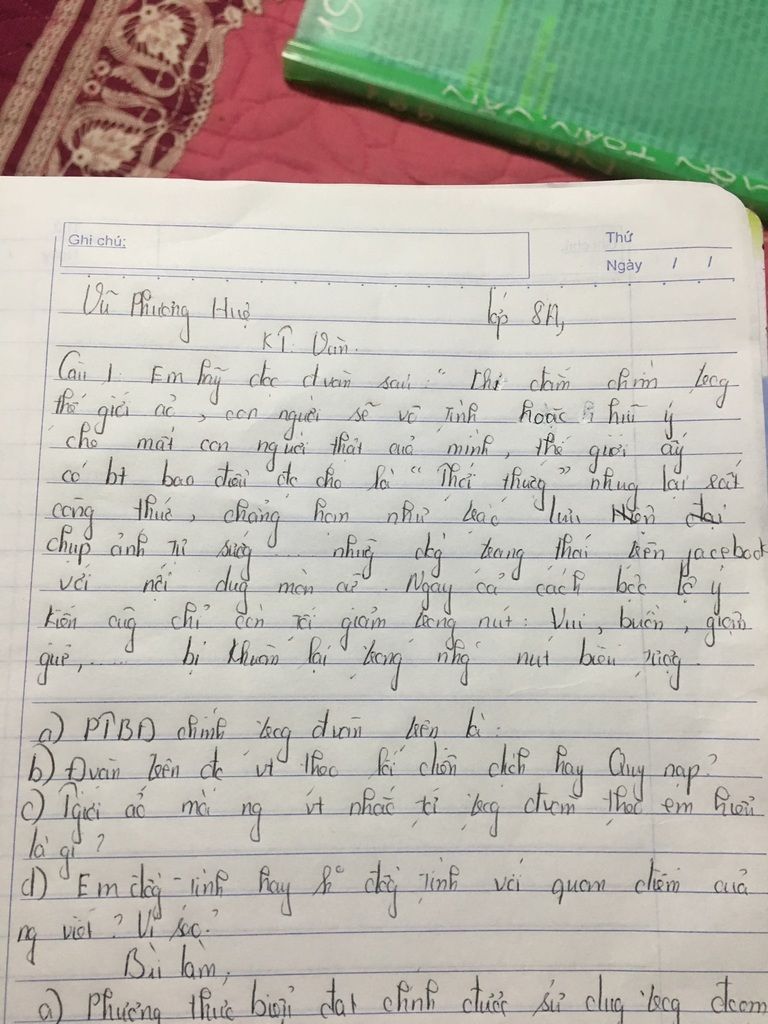 MÔN TOÁN, VĂN
Ghi chú:
Thứ
Ngày / /
Vũ Phương Huệ lớp 8A,
KT Văn.
Câu 1. Em hãy đọc đvăn sau: " khi chăm chăm trog
thế giới ảo, con người sẽ vô tình hoặc hữu ý
che mất con người thật của mình, thế giới ấy
có bt bao điều đc cho là " Thời thượg" nhưg lại rất
công thức, chẳng hạn như các lưu đại
chụp ảnh tự sướg ... nhữg dòg trạng thái trên facebook
với nội dug mòn cũ. Ngay cả cách bộc lộ ý
kiến cũg chỉ còn tối giảm trog nút: Vui, buồn, giận
giữ, ...... bị khuôn lại trong nhữg nút biểu tượg.
a) PTBĐ chính trog đvăn trên là:
b) Đvăn trên đc vt theo lối diễn dịch hay Quy nạp?
c) Tgiới ảo mà ng vt nhắc tí trog đvăn theo em hiểu
là gì?
d) Em đồg tình hay k° đồg tình với quan điểm của
ng viết? Vì sao?
Bài làm,
a) Phương thức biểu đạt chính được sử dụg trog đoạn